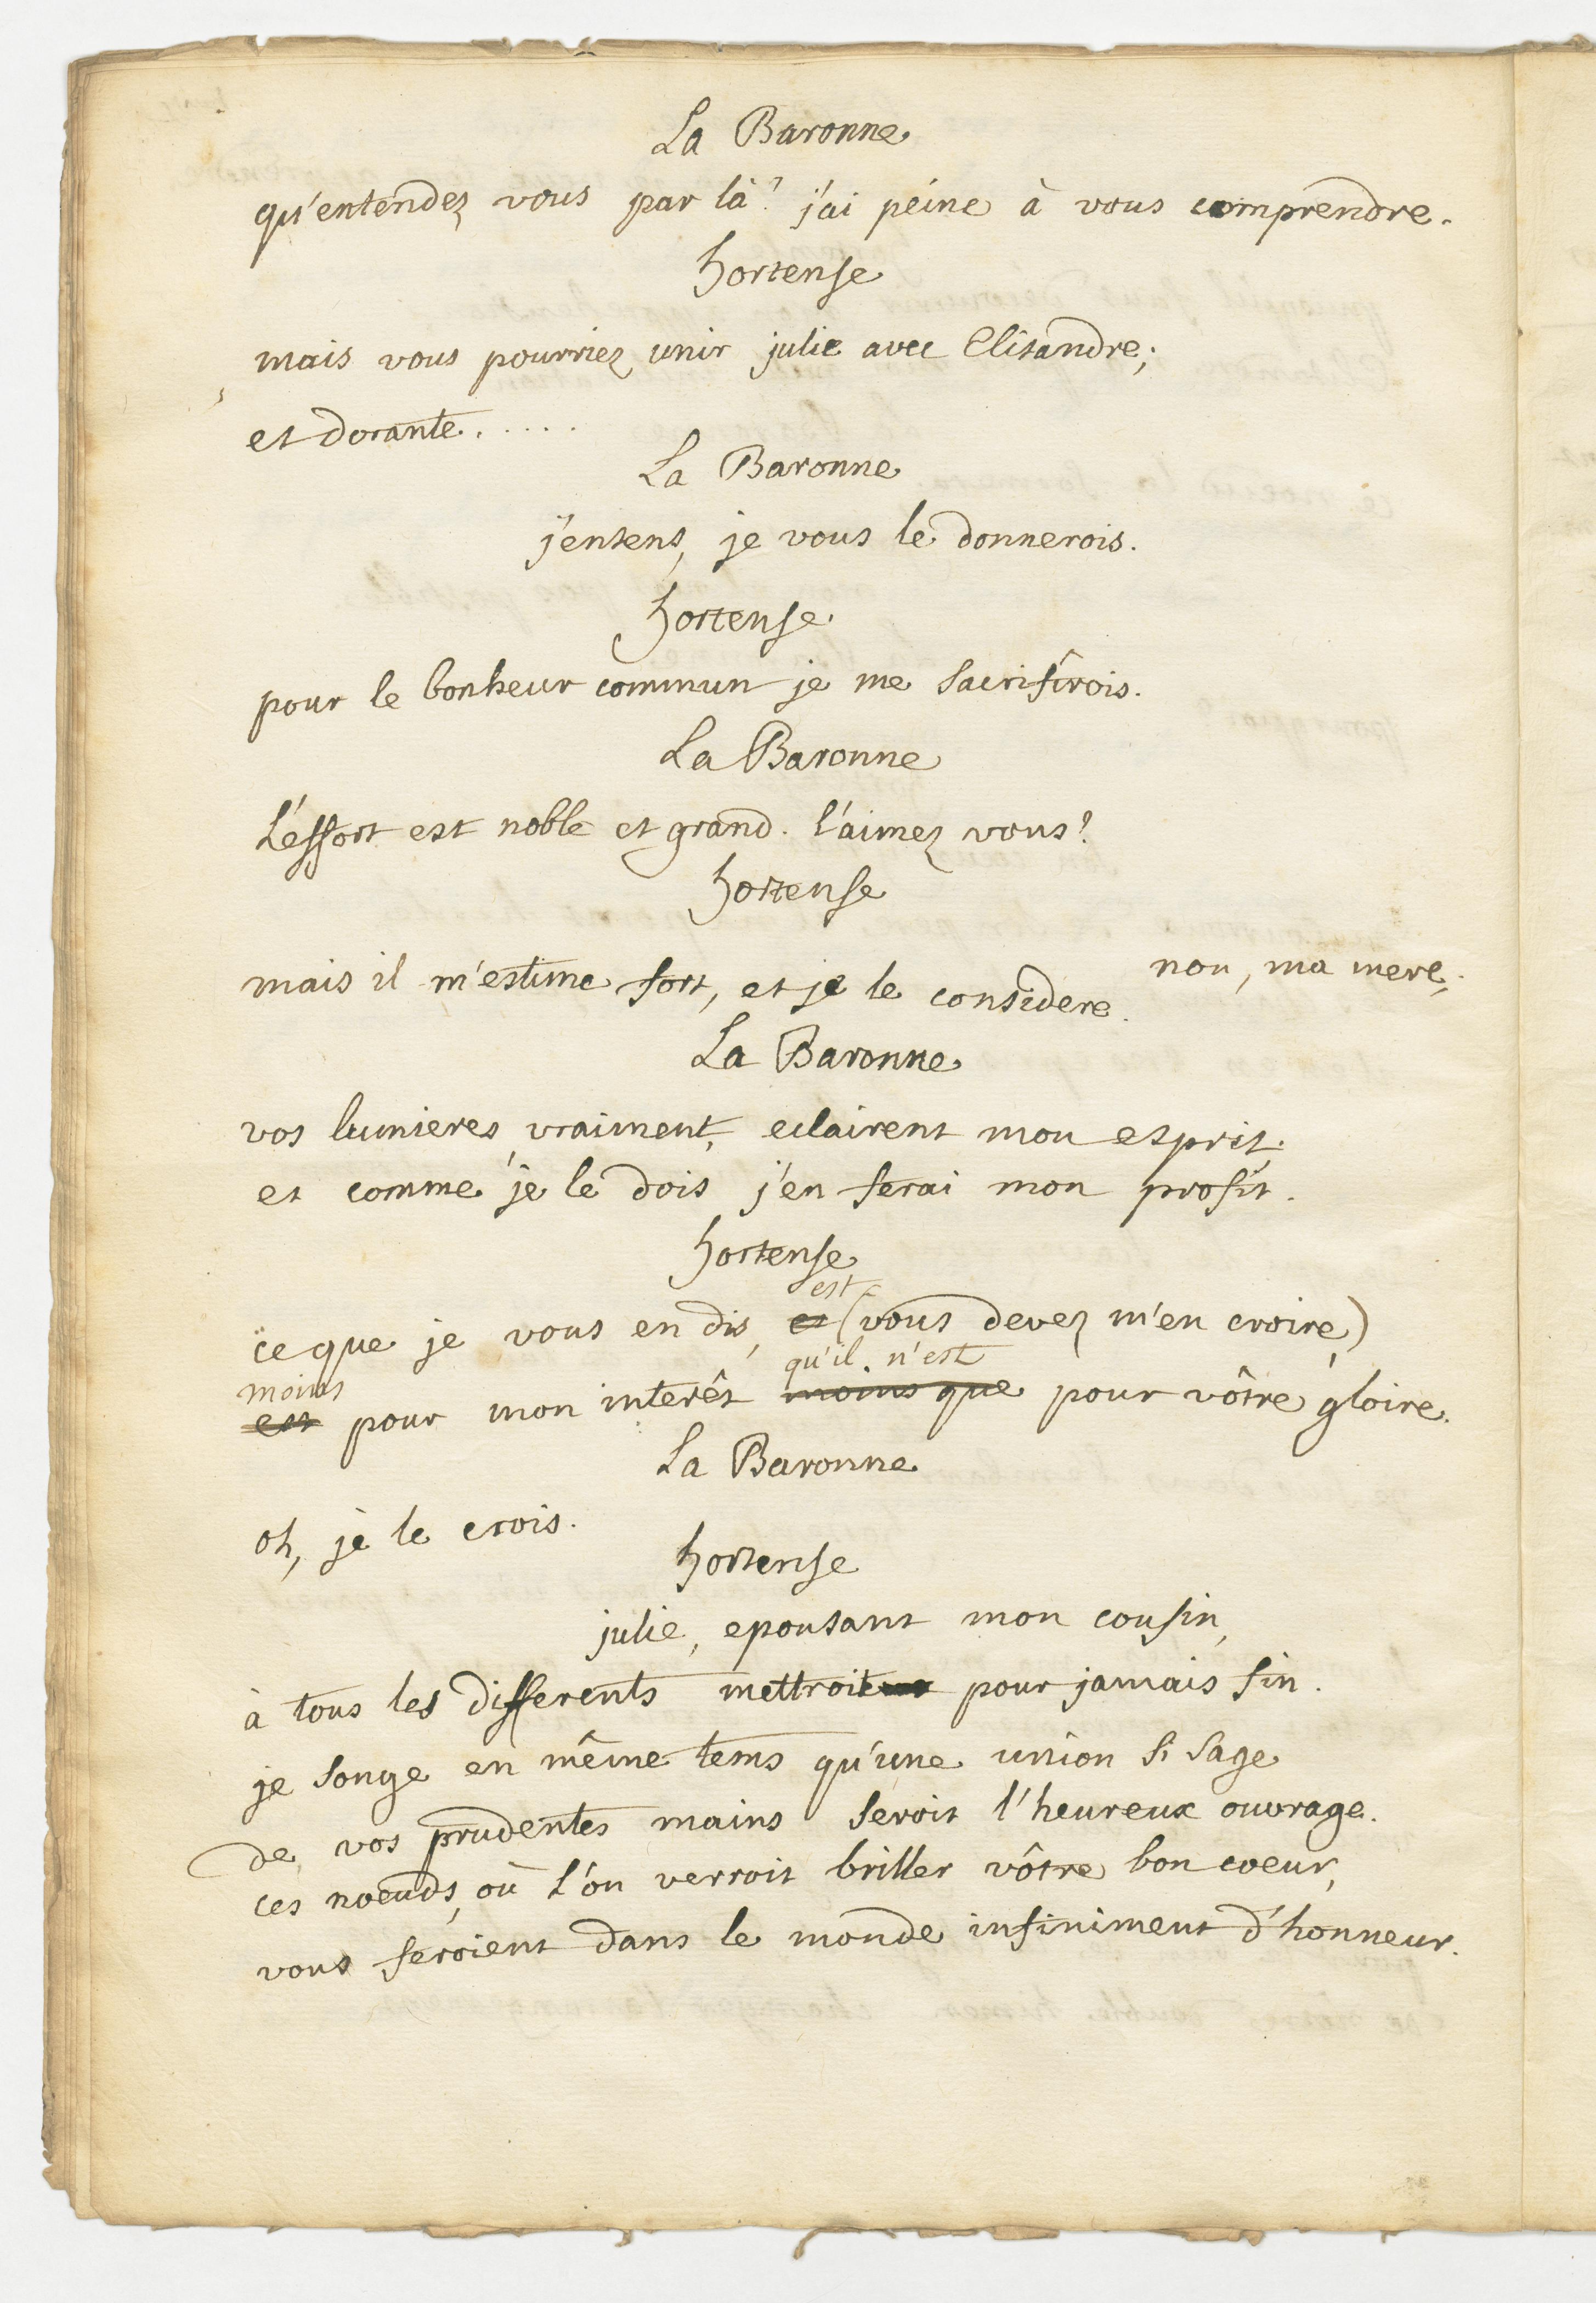 La Baronne
qu'entendez vous par là? j'ai péine à vous comprendre.
hortense
mais vous pourriez unir julie avec Clitandre;
et dorante.....
La Baronne
j'entens, je vous le donnerois.
hortense
pour le bonheur commun je me sacrifîrois.
La Baronne
L'éffort est noble et grand. l'aimez vous?
hortense
non, ma mere;
mais il m'estime fort, et je le considere.
La Baronne
vos lumieres, vraiment, eclairent mon esprit;
et comme je le dois j'en ferai mon profit.
hortense
est
ce que je vous en dis, et (vous devez m'en croire)
moins qu'il n'est
est pour mon interêt moins que pour vôtre gloire.
La Baronne
oh, je le crois.
hortense
julie, epousant mon cousin,
à tous les differents mettroit pour jamais fin.
je songe en même tems qu'une union si sage
de vos prudentes mains seroit l'heureux ouvrage.
ces noeuds, où l'on verroit briller vôtre bon coeur,
vous feroient dans le monde infiniment d'honneur.